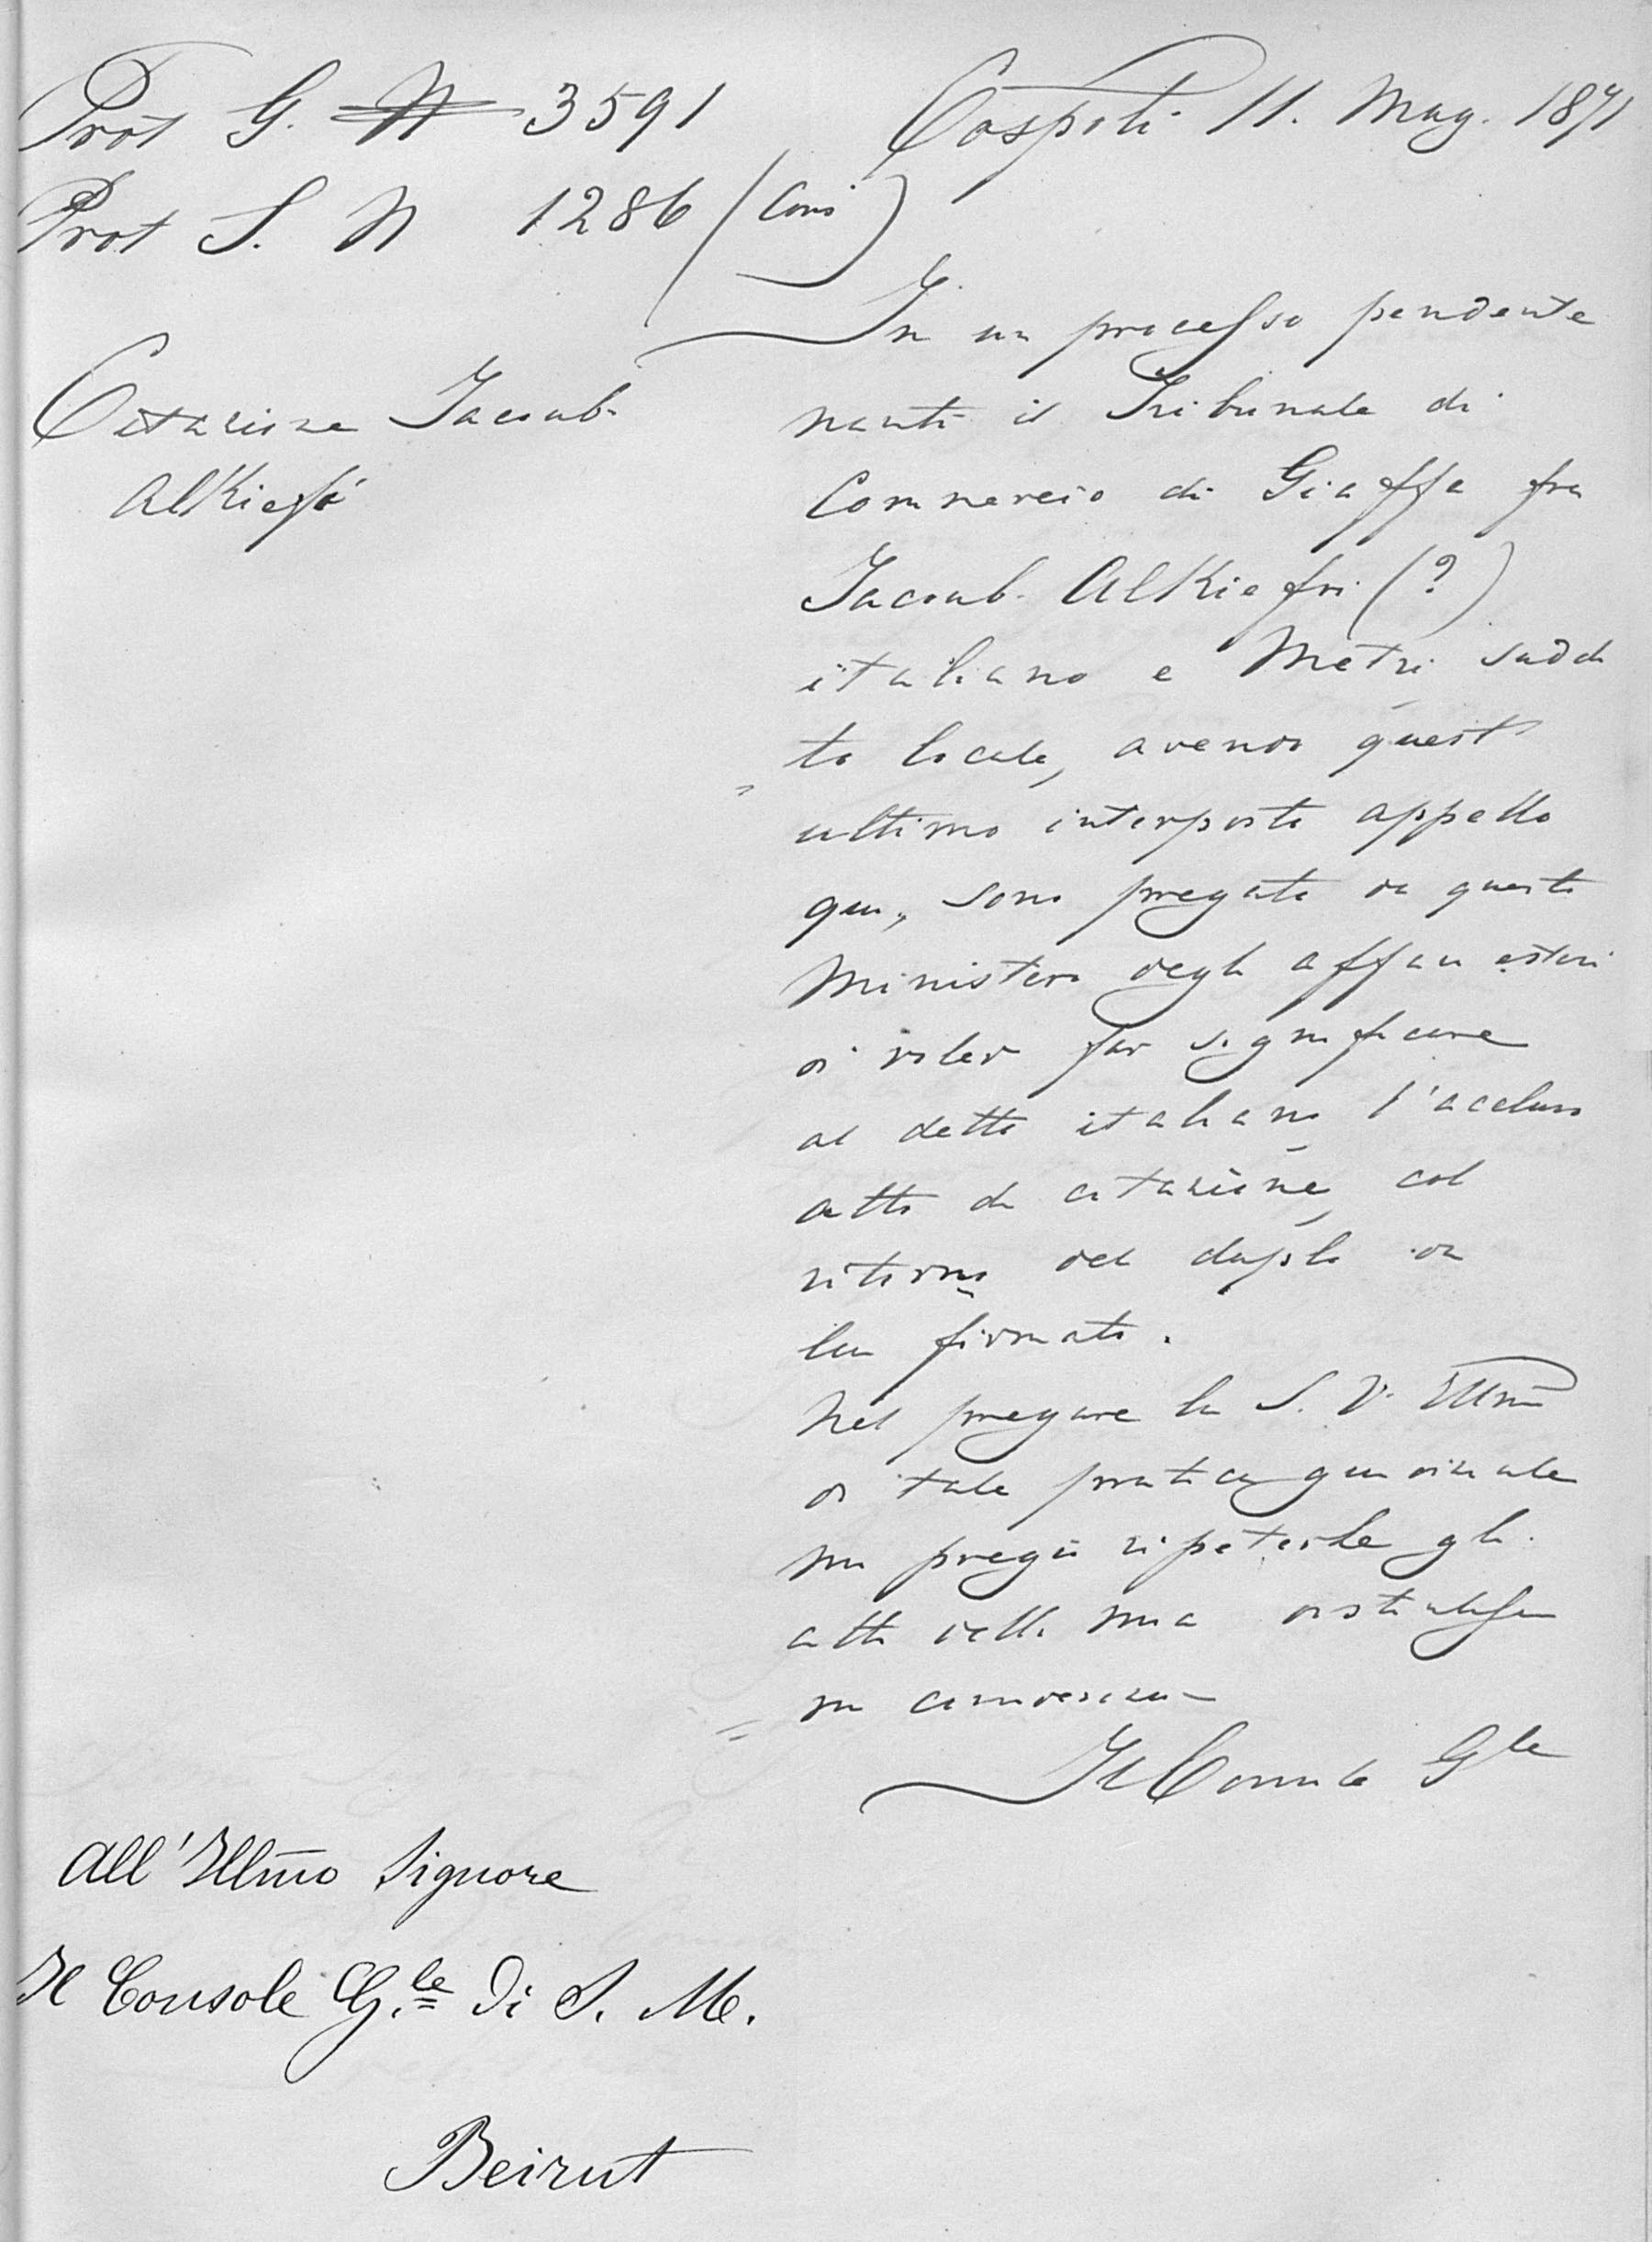 Prot G. N 3591
Cospoli 11. Mag. 1871
Prot S. N 1286 (Cons)
Citazione Jacoub
AlKiefi
In un processo pendente
nanti il Tribunale di
Commercio di Giaffa fra
Jacoub AlKiefri (?)
italiano e Metri suddi
to locale, avendo quest'
ultimo interposto appello
qui, sono pregato da questo
Ministero degli affari esteri
di voler far significare
al detto italiano l'accluso
atto di citazione, col
ritorno del duplo da
lui firmato.
Nel pregare la S. V. Illma
di tale pratica giudiziale
mi pregio ripeterle gli
atti della mia distintissi
ma considerazione
Il Console Gle
All'Illmo Signore
Il Console G.le di S. M.
Beirut